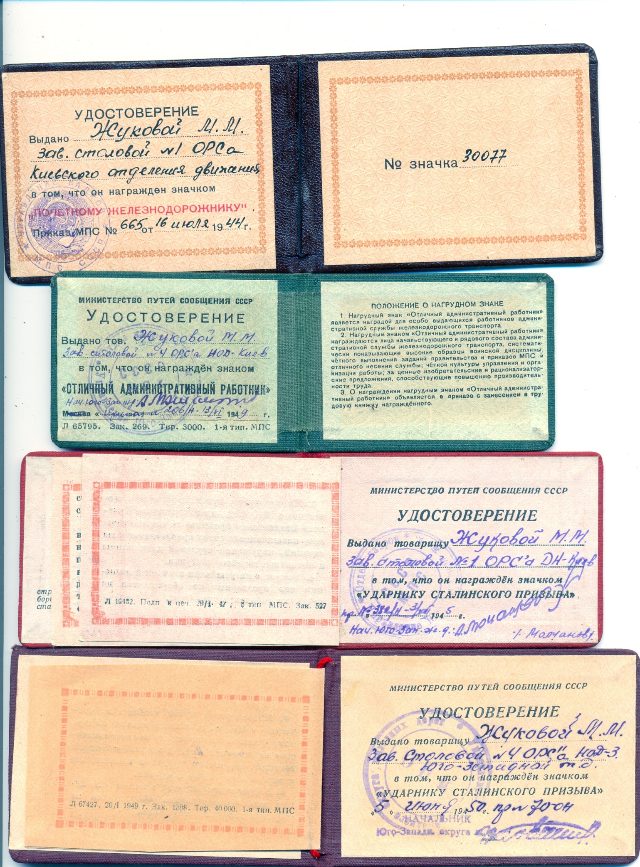 УДОСТОВЕРЕНИЕ
Выдано Жуковой М.М.
Зав. столовой №1 ОРСа
Киевского отделения движения
в том, что он награждён значком
„ПОЧЕТНОМУ ЖЕЛЕЗНОДОРОЖНИКУ".
Приказ МПС № 665 от 16 июля 1944 г.
№ значка 30077
МИНИСТЕРСТВО ПУТЕЙ СООБЩЕНИЯ СССР
УДОСТОВЕРЕНИЕ
Выдано тов. Жуковой М.М.
Зав. столовой №4 ОРС'а НОД-Киев
в том, что он награждён знаком
«ОТЛИЧНЫЙ АДМИНИСТРАТИВНЫЙ РАБОТНИК»
Москва 1949 г.
Л 65795. Зак. 269. Тир. 3000. 1-я тип. МПС
ПОЛОЖЕНИЕ О НАГРУДНОМ ЗНАКЕ
1. Нагрудный знак «Отличный административный работник»
является наградой для особо выдающихся работников админи-
стративной службы железнодорожного транспорта.
2. Нагрудным знаком «Отличный административный работник»
награждаются лица начальствующего и рядового состава админи-
стративной службы железнодорожного транспорта, системати-
чески показывающие высокие образцы воинской дисциплины,
чёткого выполнения заданий правительства и приказов МПС и
отличного несения службы, чёткой культуры управления и орга-
низации работы; за ценные изобретательские и рационализатор-
ские предложения, способствующие повышению производитель-
ности труда.
3. О награждении нагрудным знаком «Отличный администра-
тивный работник» объявляется в приказе с занесением в тру-
довую книжку награждённого.
Л 19452. Подп. к печ. 20/I 47 г. 1 тип. МПС. Зак. 527
МИНИСТЕРСТВО ПУТЕЙ СООБЩЕНИЯ СССР
УДОСТОВЕРЕНИЕ
Выдано товарищу Жуковой М.М.
Зав. Столовой №1 ОРС'а ДН-Киев
в том, что он награждён значком
«УДАРНИКУ СТАЛИНСКОГО ПРИЗЫВА»
194 г.
Нач. Юго-Зап. ж.д.
/Молчанов/
Л 67427. 20/I 1949 г. Зак. 1298. Тир. 40.000. 1-я тип. МПС
МИНИСТЕРСТВО ПУТЕЙ СООБЩЕНИЯ СССР
УДОСТОВЕРЕНИЕ
Выдано товарищу Жуковой М.М.
Зав. Столовой №4 ОРС'а НОД-3.
Юго-Западной ж.д.
в том, что он награждён значком
«УДАРНИКУ СТАЛИНСКОГО ПРИЗЫВА»
„5" июня 1950
НАЧАЛЬНИК
Юго-Западн. округа